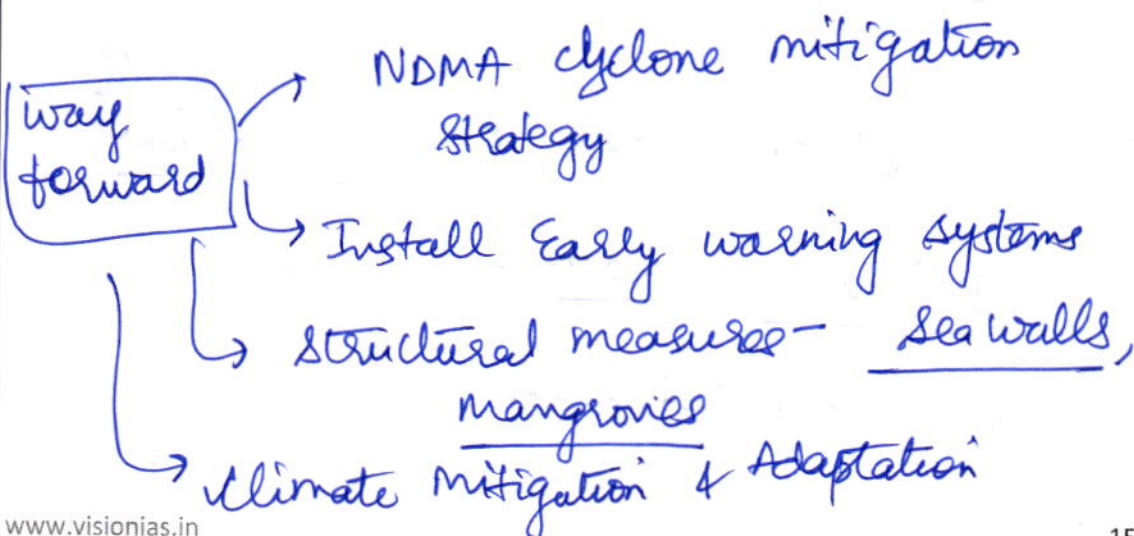 way
forward
NDMA cyclone mitigation
strategy
Install Early warning systems
structural measures - Sea walls,
Mangroves
Climate Mitigation & Adaptation
www.visionias.in
15